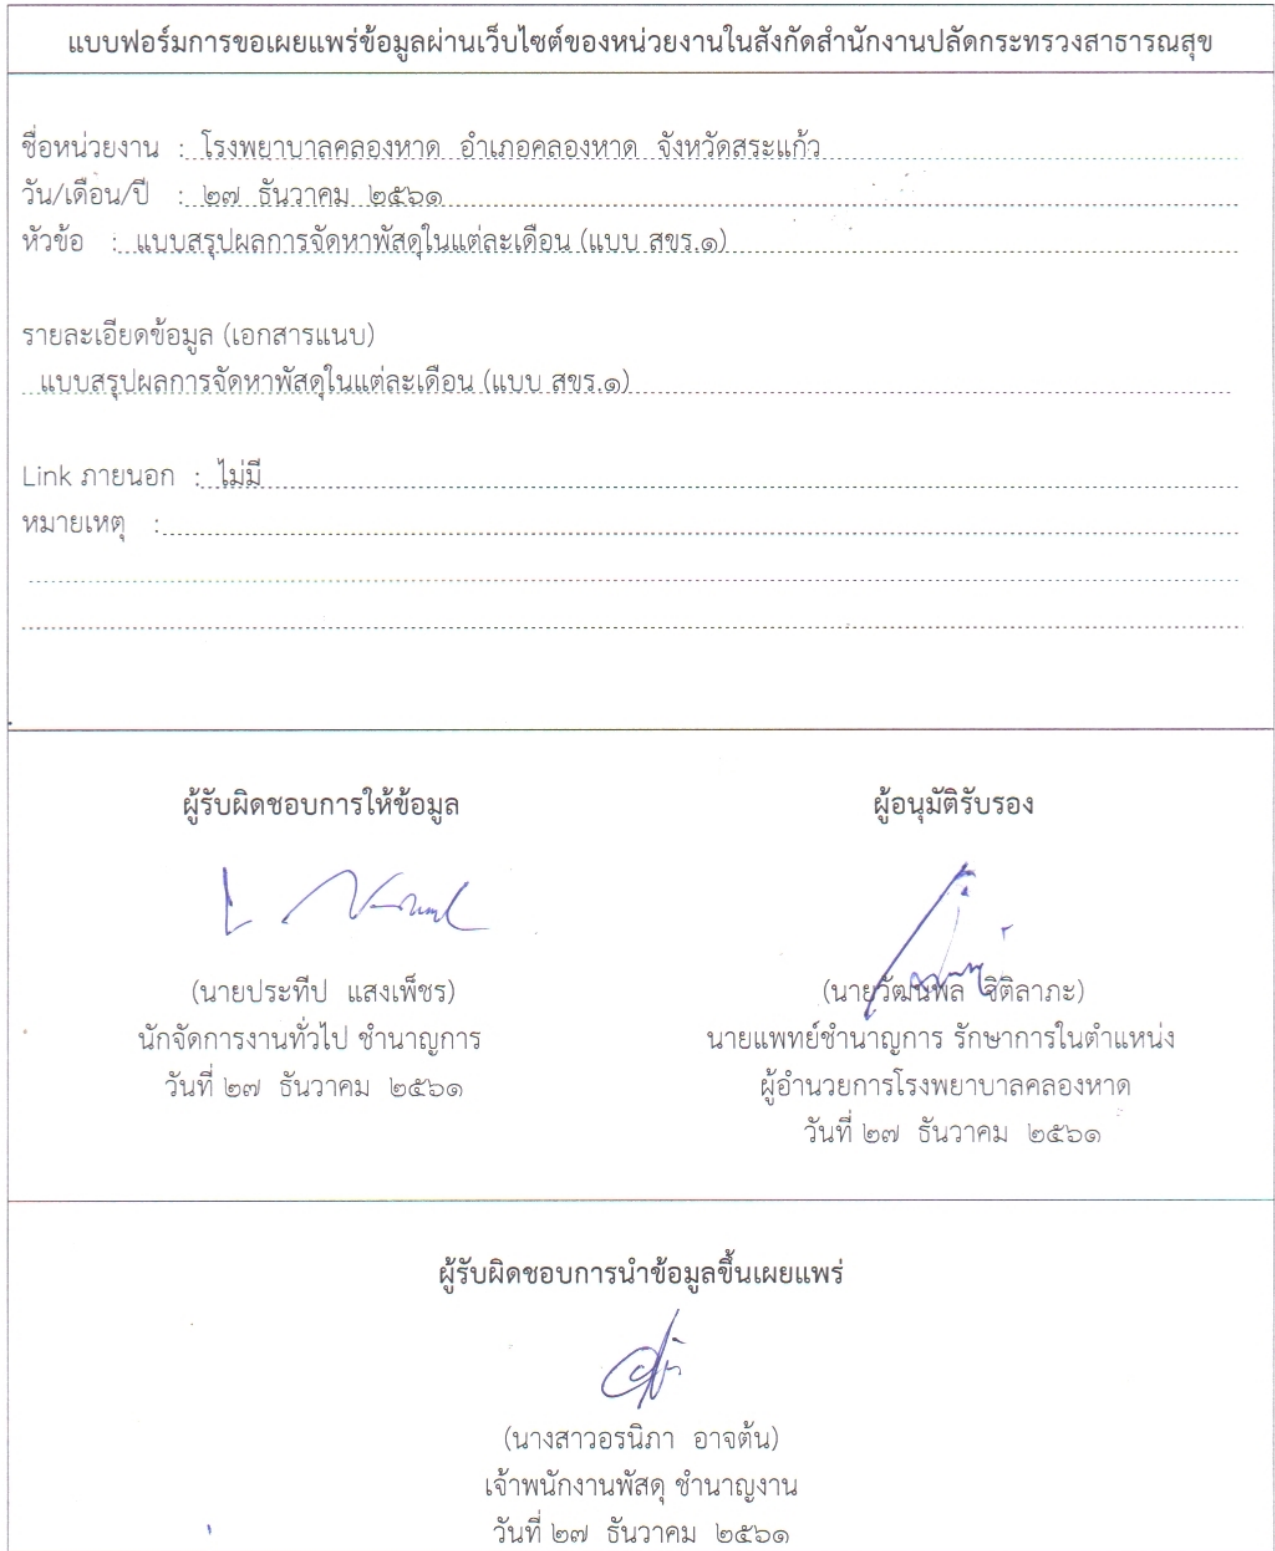 แบบฟอร์มการขอเผยแพร่ข้อมูลผ่านเว็บไซต์ของหน่วยงานในสังกัดสำนักงานปลัดกระทรวงสาธารณสุข
ชื่อหน่วยงาน : โรงพยาบาลคลองหาด อำเภอคลองหาด จังหวัดสระแก้ว
วัน/เดือน/ปี : ๒๗ ธันวาคม ๒๕๖๑
หัวข้อ : แบบสรุปผลการจัดหาพัสดุในแต่ละเดือน (แบบ สขร.๑)
รายละเอียดข้อมูล (เอกสารแนบ)
แบบสรุปผลการจัดหาพัสดุในแต่ละเดือน (แบบ สขร.๑)
Link ภายนอก : ไม่มี
หมายเหตุ :
ผู้รับผิดชอบการให้ข้อมูล
ผู้อนุมัติรับรอง
(นายประทีป แสงเพ็ชร)
นักจัดการงานทั่วไป ชำนาญการ
วันที่ ๒๗ ธันวาคม ๒๕๖๑
(นายวัฒนพล ฐิติลาภะ)
นายแพทย์ชำนาญการ รักษาการในตำแหน่ง
ผู้อำนวยการโรงพยาบาลคลองหาด
วันที่ ๒๗ ธันวาคม ๒๕๖๑
ผู้รับผิดชอบการนำข้อมูลขึ้นเผยแพร่
(นางสาวอรนิภา อาจต้น)
เจ้าพนักงานพัสดุ ชำนาญงาน
วันที่ ๒๗ ธันวาคม ๒๕๖๑